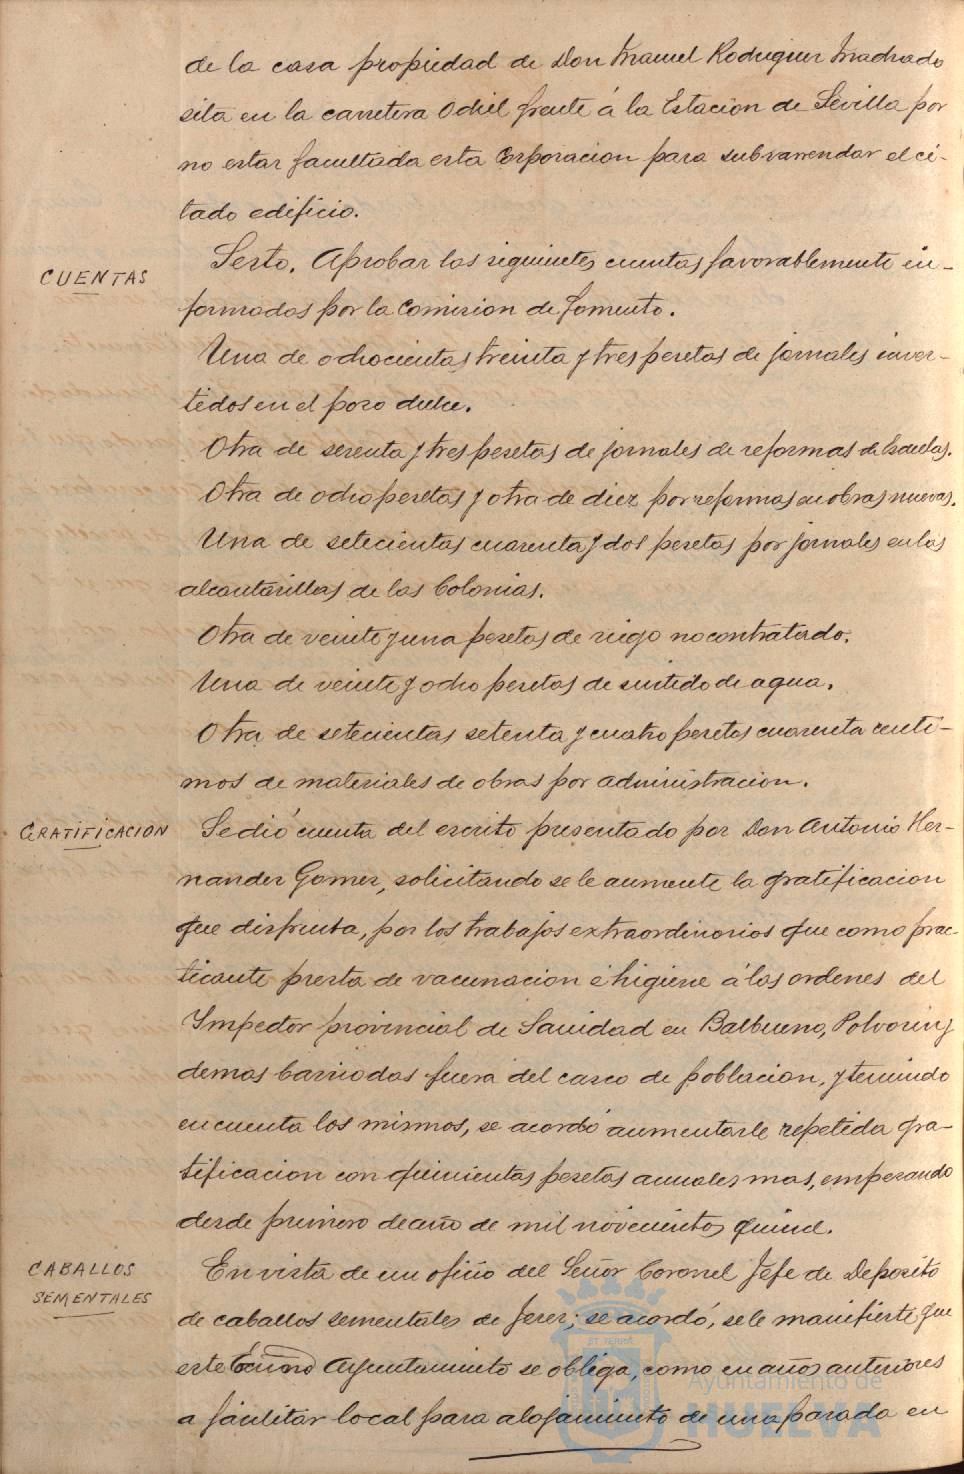 de la casa propiedad de Don Manuel Rodriguez Madrado
sita en la carretera Odiel frente á la Estacion de Sevilla por
no estar facultada esta Corporacion para subvarrendar el ci-
tado edificio.
CUENTAS
Sesto. Aprobar las siguientes cuentas favorablemente in-
formadas por la Comision de Fomento.
Una de ochocientas treinta y tres pesetas de jornales inver-
tidos en el pozo dulce.
Otra de sesenta y tres pesetas de jornales de reformas de Escuelas.
Otra de ocho pesetas y otra de diez por reformas en obras nuevas.
Una de setecientas cuarenta y dos pesetas por jornales en las
alcantarillas de las Colonias.
Otra de veinte y una pesetas de riego no contratado.
Una de veinte y ocho pesetas de surtido de agua.
Otra de setecientas setenta y cuatro pesetas cuarenta centi-
mos de materiales de obras por administracion.
GRATIFICACION
Se dió cuenta del escrito presentado por Don Antonio Her-
nandez Gomez, solicitando se le aumente la gratificacion
que disfruta, por los trabajos extraordinarios que como prac-
ticante presta de vacunacion é higiene á las ordenes del
Ympector provincial de Sanidad en Balbueno, Polvorin y
demas barriadas fuera del casco de poblacion, y teniendo
en cuenta los mismos, se acordó aumentarle repetida gra-
tificacion con quinientas pesetas anuales mas, empezando
desde primero de año de mil novecientos quince.
CABALLOS
SEMENTALES
En vista de un oficio del Señor Coronel Jefe de Deposito
de caballos sementales de Jerez; se acordó, se le manifieste que
este Excmo Ayuntamiento se obliga, como en años anteriores
a facilitar local para alojamiento de una parada en
Ayuntamiento de
HUELVA